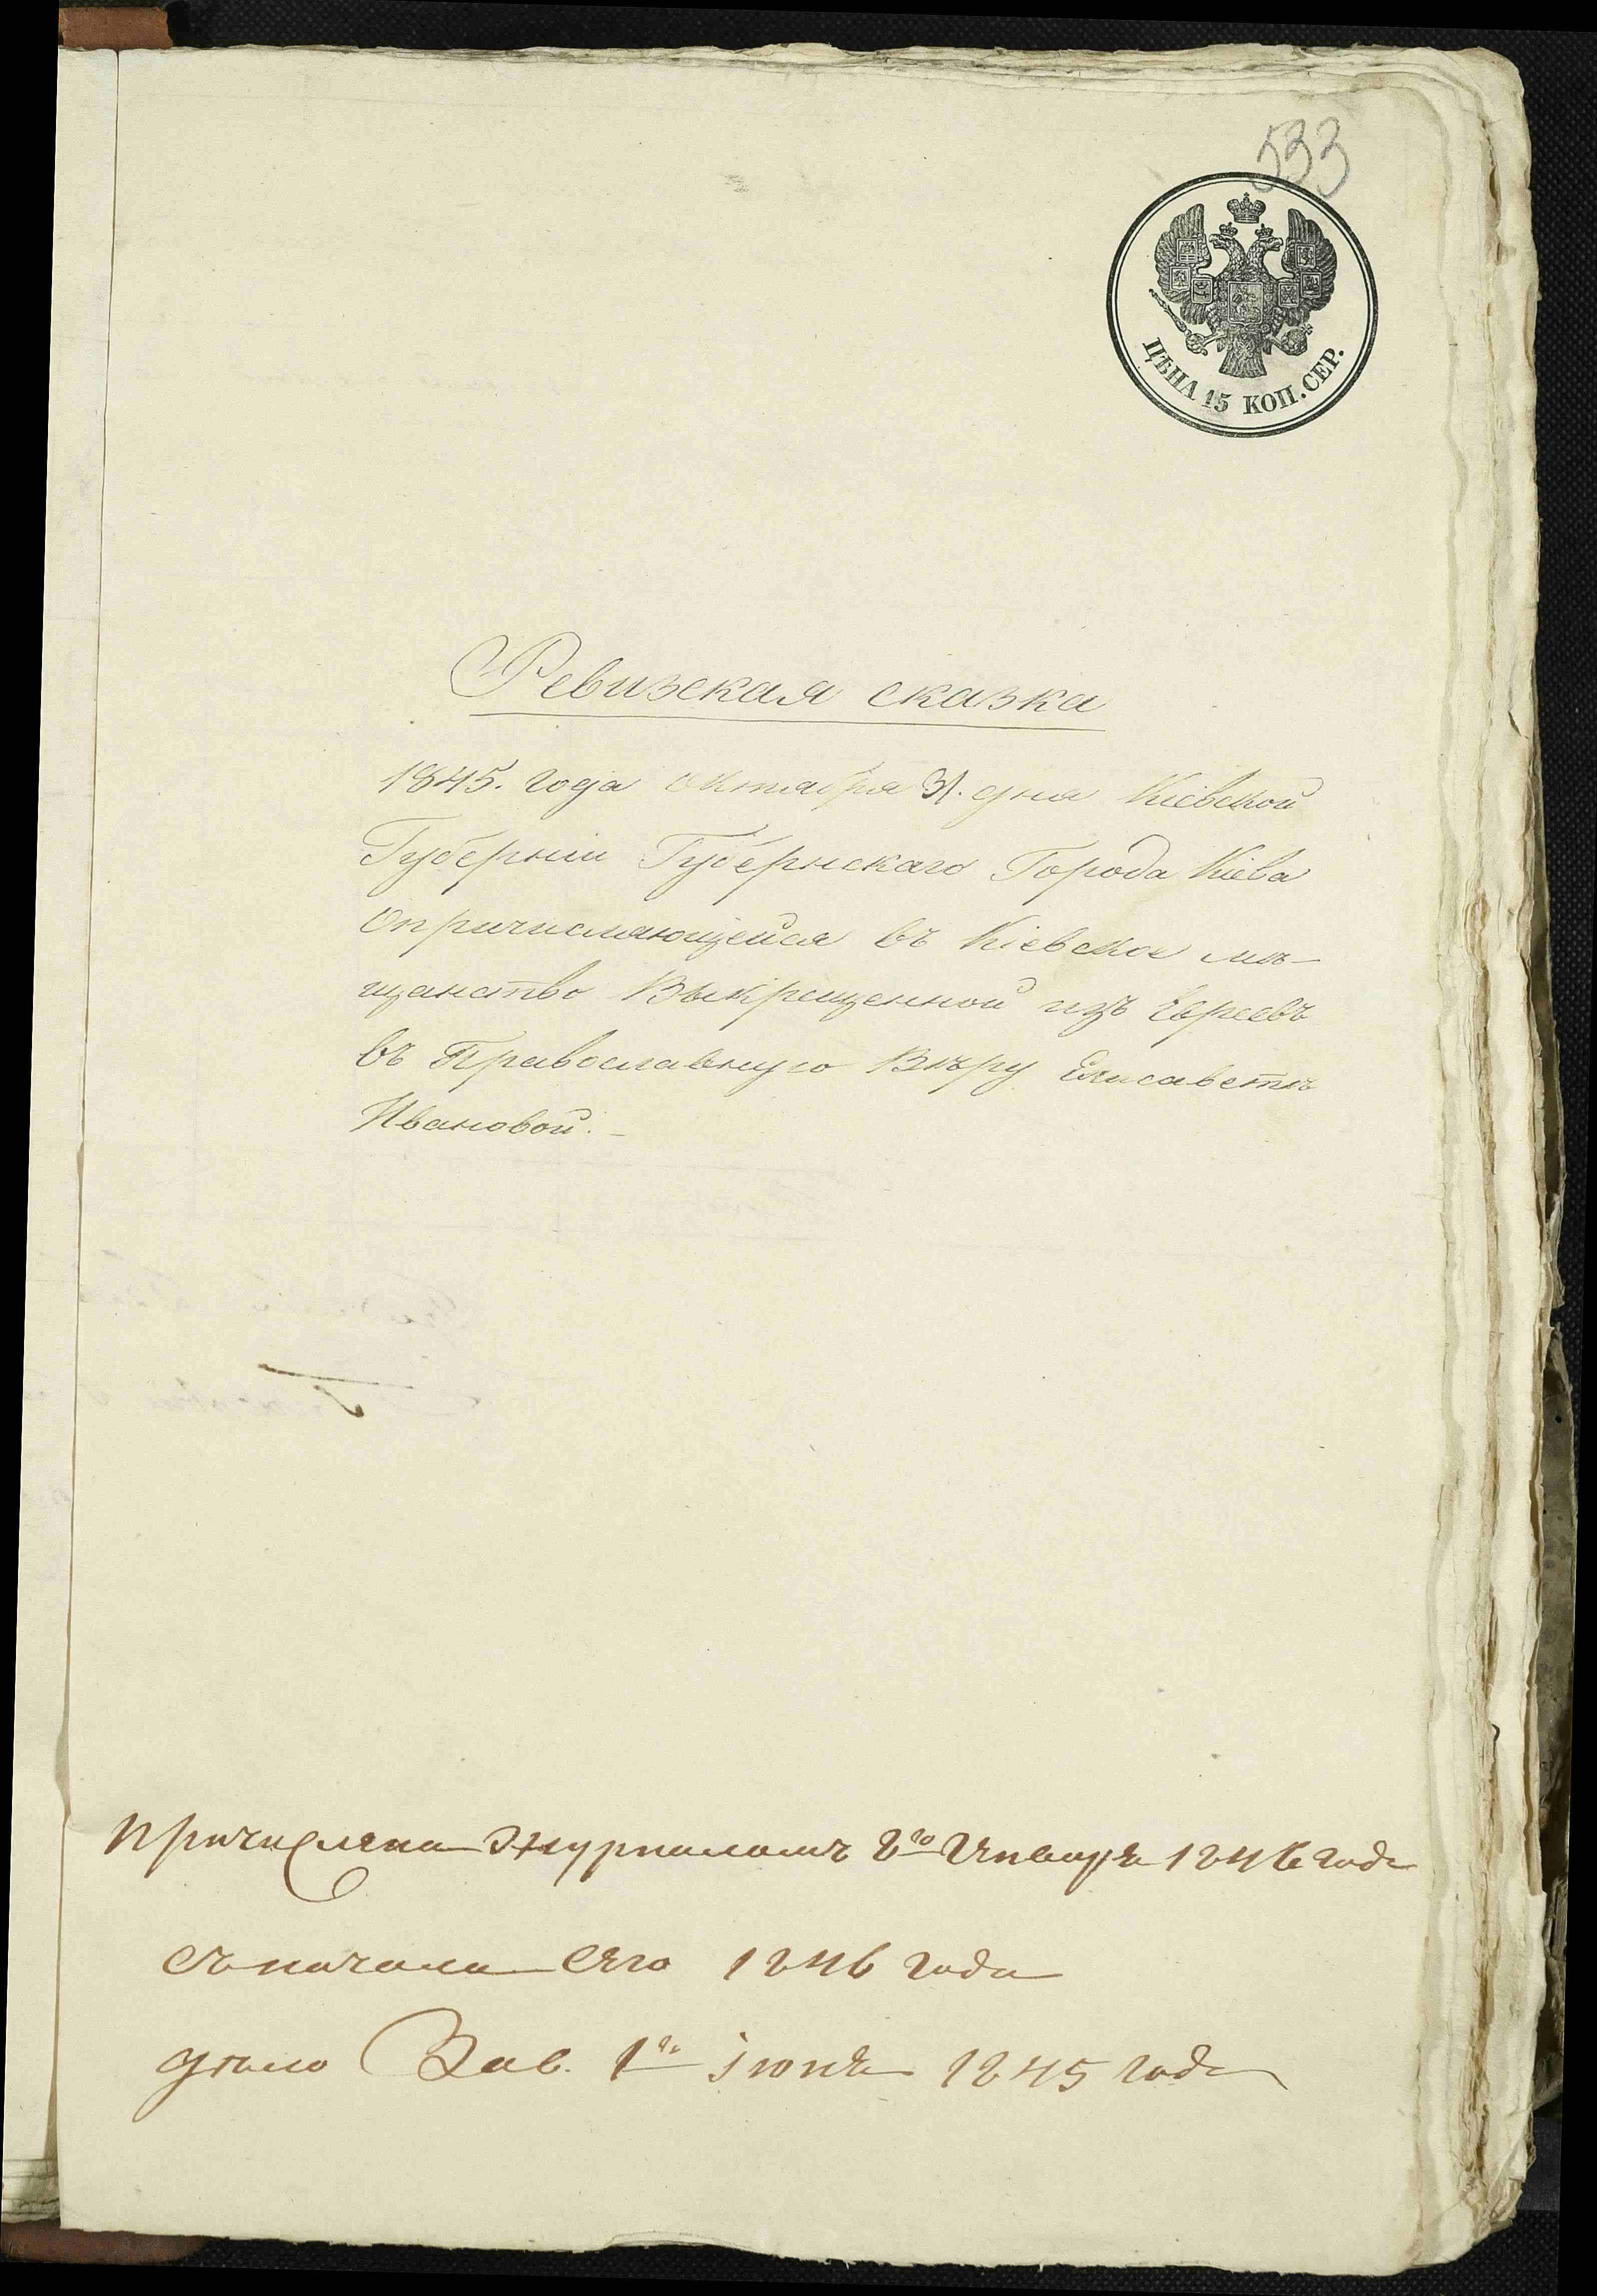 533
ЦѢНА 15 КОП. СЕР.
Ревизская сказка
1845. года октября 31. дня Кіевской
Губерніи Губернскаго Города Кіева
опричисляющейся въ Кіевское мѣ-
щанство Выкрещенной изъ Евреевъ
въ Православную Вѣру Елисаветѣ
Ивановой. –
Причислена Журналомъ 8го Генваря 1846 года
съ начала сего 1846 года
дѣло Зав. 1го іюня 1845 года